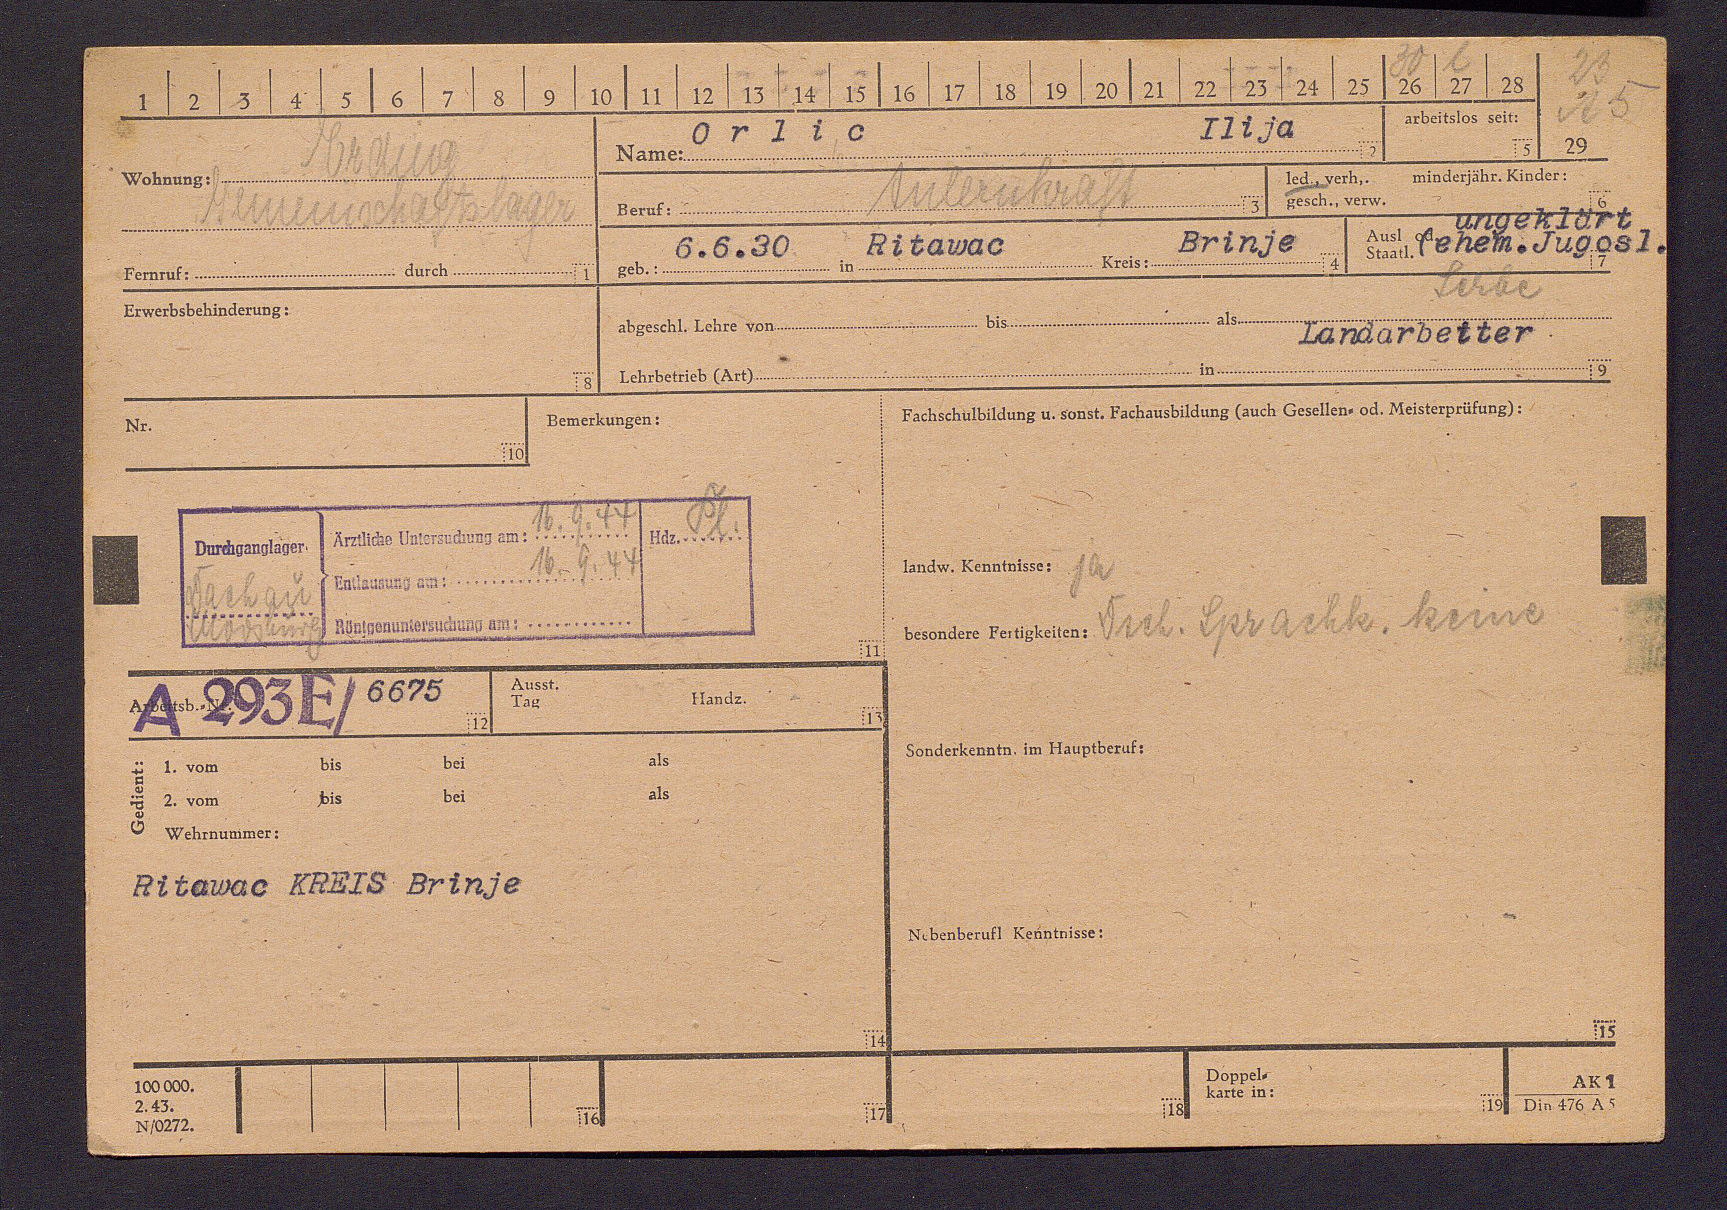 30 l 23
1 2 3 4 5 6 7 8 9 10 11 12 13 14 15 16 17 18 19 20 21 22 23 24 25 26 27 28
A 5
29
Name: Orlic Ilija 2
arbeitslos seit: 5
Wohnung: Erding
Gemeinschaftslager
Beruf: 3
led., verh,. minderjähr. Kinder:
gesch., verw. 6
Fernruf: durch 1
geb.: 6.6.30 in Ritawac Kreis: Brinje 4
ungeklärt
Ausl od. (ehem. Jugosl.
Staatl. 7
Serbe
Erwerbsbehinderung:
8
abgeschl. Lehre von bis als
Landarbeiter
Lehrbetrieb (Art) in 9
Nr.
10
Bemerkungen:
Fachschulbildung u. sonst. Fachausbildung (auch Gesellen- od. Meisterprüfung):
Durchganglager
Dachau
Moosburg
Ärztliche Untersuchung am: 16.9.44 Hdz.
Entlausung am: 16.9.44
Röntgenuntersuchung am:
11
landw. Kenntnisse: ja
besondere Fertigkeiten: Dtch. Sprachk. keine
Arbeitsb.-Nr. A 293E/ 6675
12
Ausst.
Tag Handz.
13
Gedient:
1. vom bis bei als
2. vom bis bei als
Wehrnummer:
Ritawac KREIS Brinje
14
Sonderkenntn. im Hauptberuf:
Nebenberufl Kenntnisse:
15
100 000.
2. 43.
N/0272.
16
17
18
Doppel-
karte in:
19
AK 1
Din 476 A 5